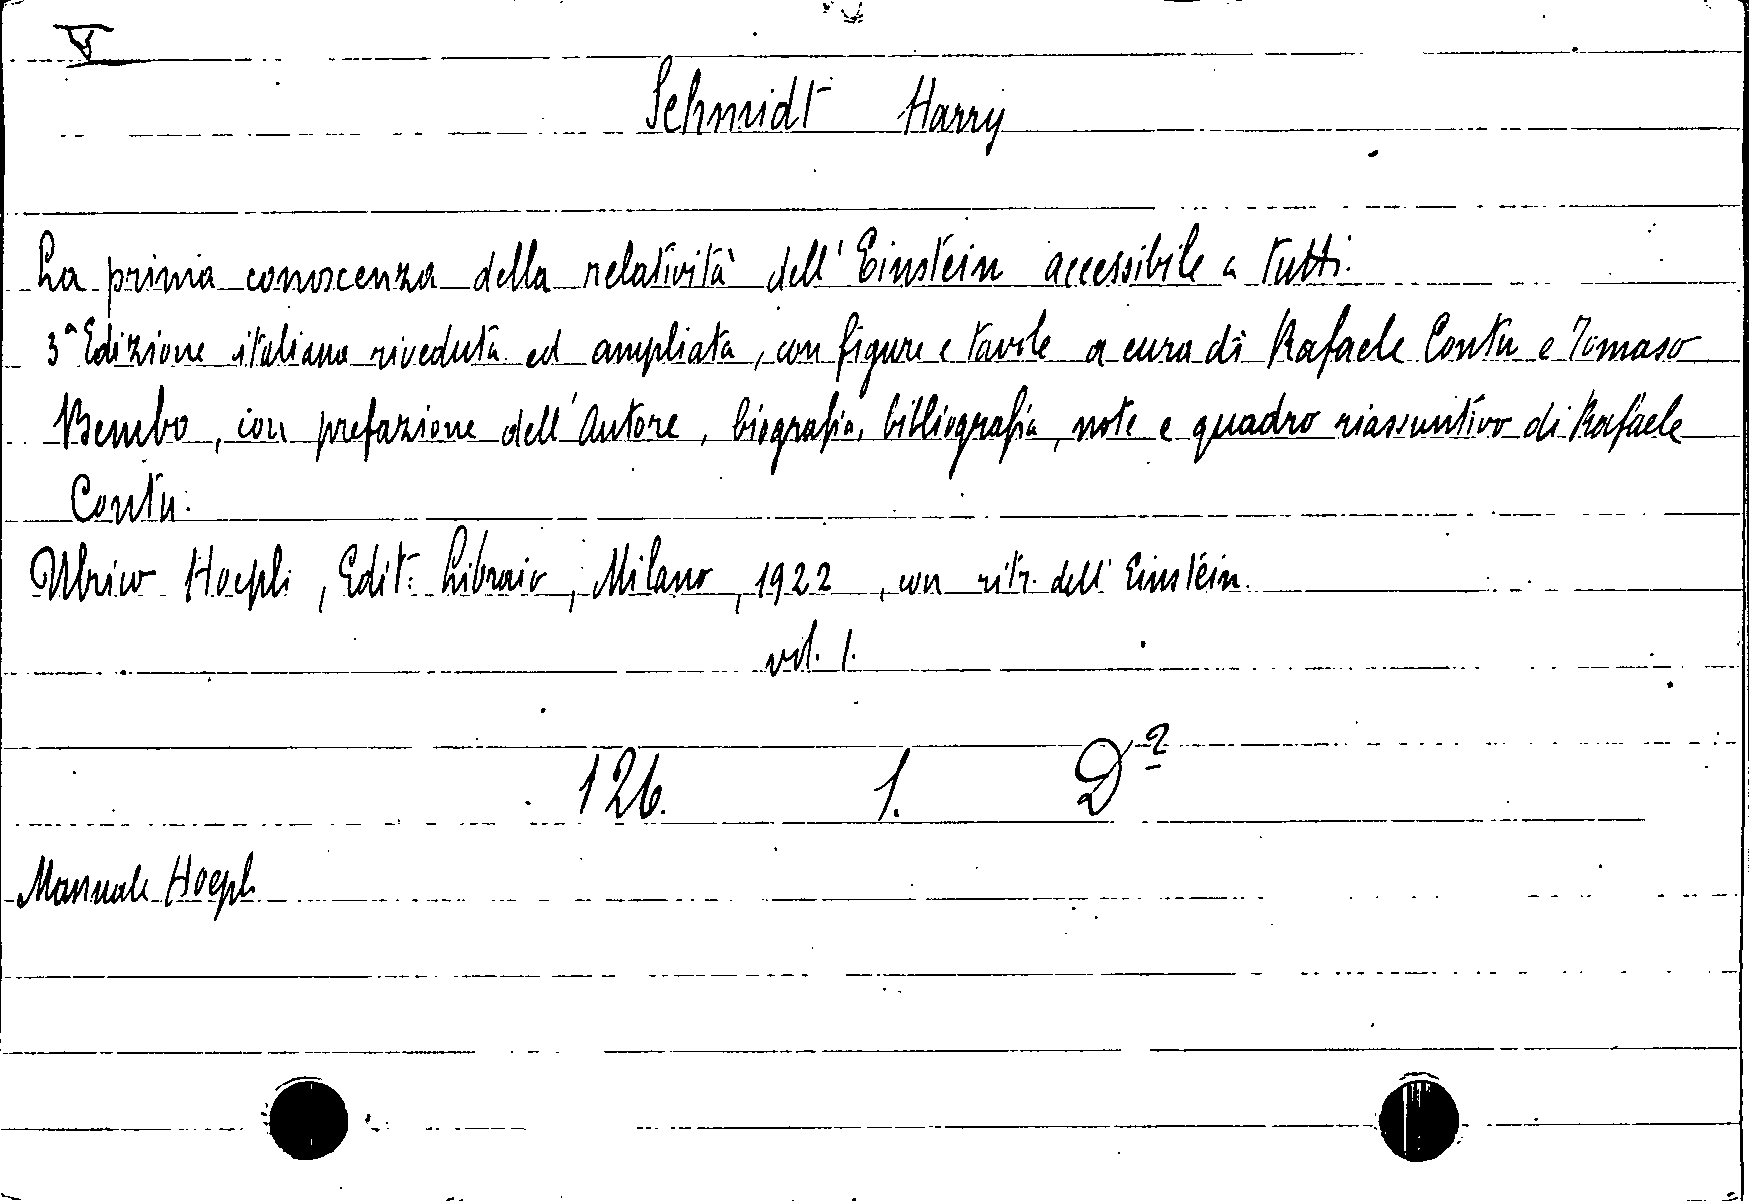 V
Schmidt Harry
La prima conoscenza della relatività dell'Einstein accessibile a tutti.
3ª Edizione italiana riveduta ed ampliata, con figure e tavole a cura di Rafaele Contu e Tomaso
Bembo, con prefazione dell'Autore, biografia, bibliografia, note e quadro riassuntivo di Rafaele
Contu.
Ulrico Hoepli, Edit. Libraio, Milano, 1922, con ritr. dell'Einstein.
vol. 1.
126. 1. D²
Manuale Hoepli